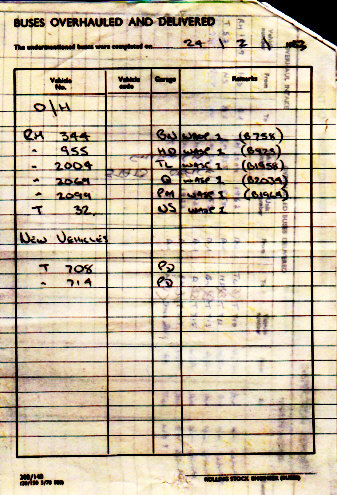 BUSES OVERHAULED AND DELIVERED
The undermentioned buses were completed on 24 / 2 /
Vehicle No. Vehicle code Garage Remarks
O/H
RM 344 BN WASP I (B758)
" 955 HD WASP I
" 2004 TL WASP I (B1958)
" 2069 Q WASP I
" 2099 PM WASP I
T 32 NS WASP I
NEW VEHICLES
T 708 PD
" 714 PD
ROLLING STOCK ENGINEER (BUSES)